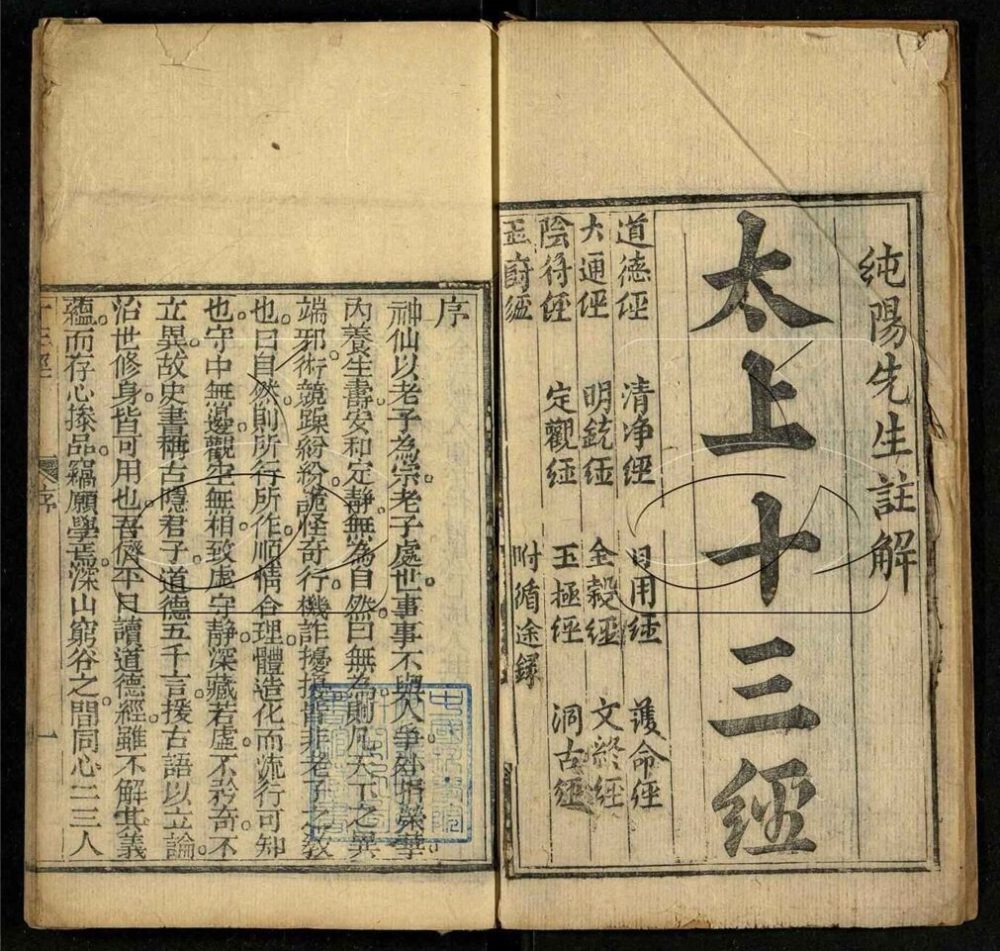 純陽先生註解
太上十三經
道德經　清净經　日用經　護命經
大通經　明鏡經　金穀經　文終經
陰符經　定觀經　玉樞經　洞古經
五廚經　附循途錄
序
神仙以老子為宗。老子處世事事不與人爭。外捐榮華。
內養生壽。安和定靜。無為自然。曰無為。則凡天下之異
端邪術。競躁紛紛。詭怪奇行。機詐擾擾。皆非老子之教
也。曰自然。則所行所作。順情合理。體造化而流行可知
也。守中無邊。觀空無相。致虛守靜。深藏若虛。不矜奇。不
立異。故史書稱古隱君子。道德五千言。援古語以立論。
治世修身。皆可用也。吾儕平日讀道德經。雖不解其義
蘊。而存心操品。竊願學焉。深山窮谷之間。同心二三人
十三經　序　一